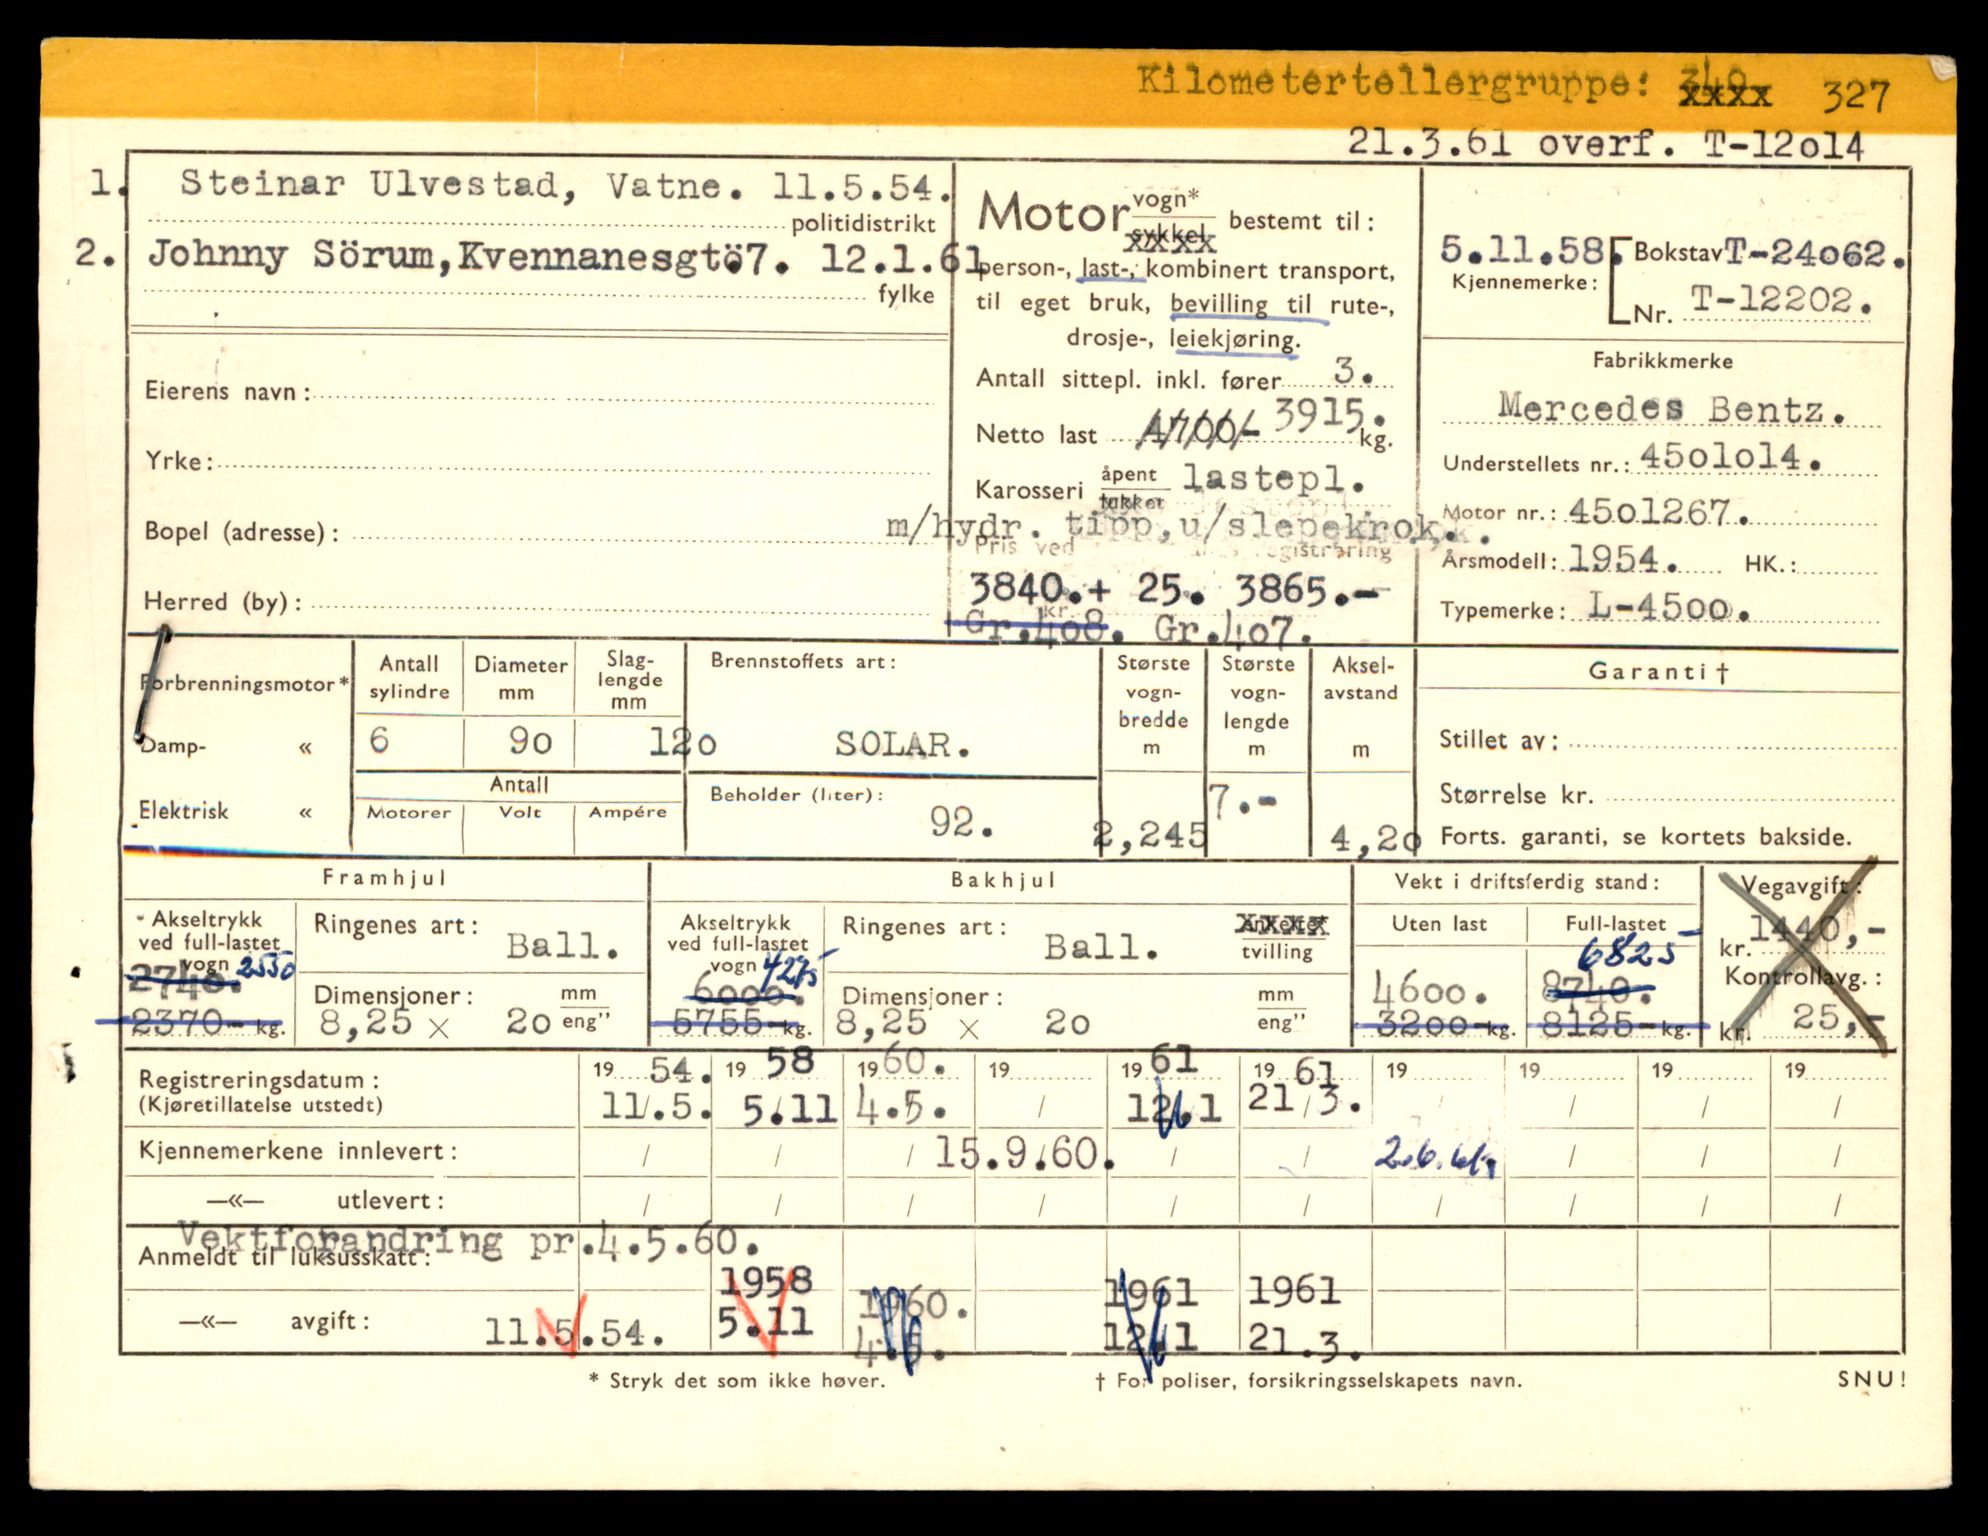 Kilometertellergruppe: 340 327
21.3.61 overf. T-12o14
1. Steinar Ulvestad, Vatne. 11.5.54.
politidistrikt
2. Johnny Sörum,Kvennanesgtö7. 12.1.61
fylke
Eierens navn:
Yrke:
Bopel (adresse):
Herred (by):
Motor vogn* sykkel bestemt til:
person-, last-, kombinert transport,
til eget bruk, bevilling til rute-,
drosje-, leiekjøring.
Antall sittepl. inkl. fører 3.
Netto last 4700/- 3915. kg.
Karosseri åpent lukket lastepl.
m/hydr. tipp,u/slepekrok.
Pris ved registrering
3840.+ 25. 3865.-
kr.
Gr.4o8. Gr.4o7.
5.11.58. Bokstav T-24o62.
Kjennemerke:
Nr. T-12202.
Fabrikkmerke
Mercedes Bentz.
Understellets nr.: 45o1o14.
Motor nr.: 45o1267.
Årsmodell: 1954. HK.:
Typemerke: L-45oo.
Forbrenningsmotor*
Damp- «
Elektrisk «
Antall sylindre
Diameter mm
Slag-lengde mm
6 9o 12o
Antall
Motorer Volt Ampére
Brennstoffets art:
SOLAR.
Beholder (liter):
92.
Største vogn-bredde m
2,245
Største vogn-lengde m
7.-
Aksel-avstand m
4,2o
Garanti †
Stillet av:
Størrelse kr.
Forts. garanti, se kortets bakside.
Framhjul
Akseltrykk ved full-lastet vogn 2550
2740.
2370- kg.
Ringenes art:
Ball.
Dimensjoner: mm
8,25 × 2o eng”
Bakhjul
Akseltrykk ved full-lastet vogn 4275
6000.
5755- kg.
Ringenes art: enkelte*
Ball. tvilling
Dimensjoner: mm
8,25 × 2o eng”
Vekt i driftsferdig stand:
Uten last Full-lastet
6825
4600. 8740.
3200- kg. 8125- kg.
Vegavgift:
kr. 1440,-
Kontrollavg.:
kr. 25,-
Registreringsdatum: 19 54. 19 58 19 60. 19 19 61 19 61 19 19 19 19
(Kjøretillatelse utstedt) 11/.5. 5/11 4.5. / 12.1 21/3. / / / /
Kjennemerkene innlevert: / / / 15.9.60. / / 2.6.61. / / /
—«— utlevert: / / / / / / / / / /
Vektforandring pr.4.5.60.
Anmeldt til luksusskatt:
1958 1960. 1961 1961
—«— avgift: 11.5.54. 5.11 4.5. 12.1 21.3.
* Stryk det som ikke høver.
† For poliser, forsikringsselskapets navn.
SNU!